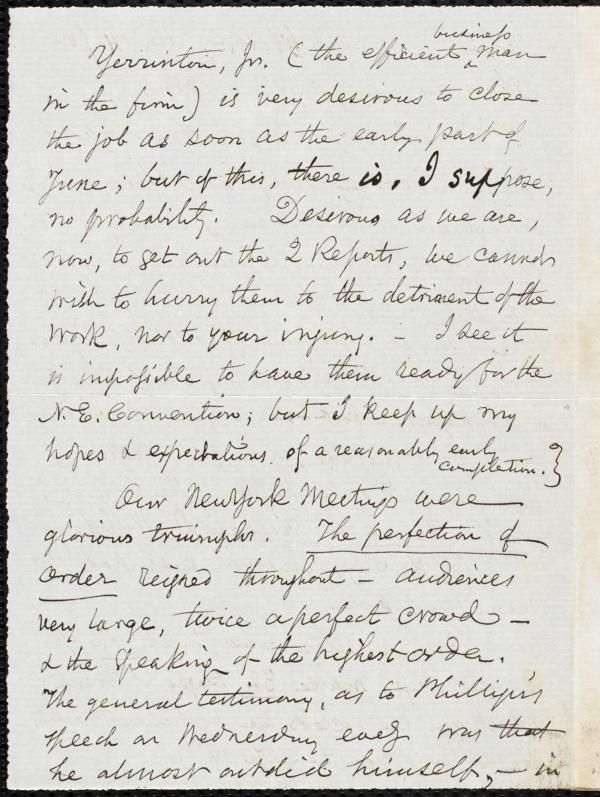 Yerrinton, Jr. (the efficient business man
in the firm) is very desirous to close
the job as soon as the early part of
June; but of this, there is, I suppose,
no probability. Desirous as we are,
now, to get out the 2 Reports, we cannot
wish to hurry them to the detriment of the
work, nor to your injury. – I see it
is impossible to have them ready for the
N.E. Convention; but I keep up my
hopes & expectations of a reasonably early
completion.}
Our New York Meetings were
glorious triumphs. The perfection of
order reigned throughout – audiences
very large, twice a perfect crowd –
& the speaking of the highest order.
The general testimony, as to Phillips's
speech on Wednesday eveg was that
he almost outdid himself, – in